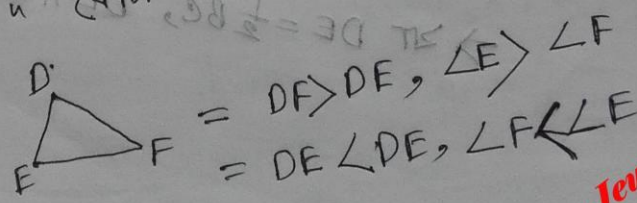 D
E
F
= DF > DE, ∠E > ∠F
= DE < DE, ∠F < ∠E